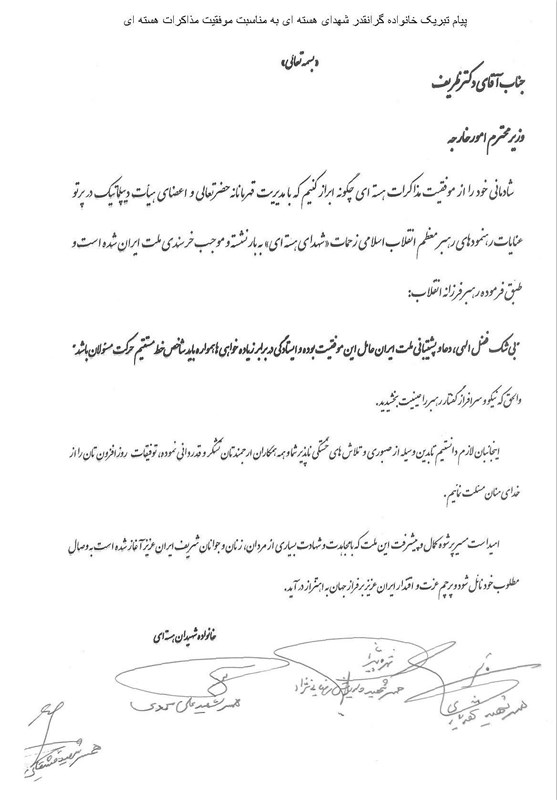 پیام تبریک خانواده گرانقدر شهدای هسته ای به مناسبت موفقیت مذاکرات هسته ای
«بسمه تعالی»
جناب آقای دکتر ظریف
وزیر محترم امور خارجه
شادمانی خود را از موفقیت مذاکرات هسته ای چگونه ابراز کنیم که با مدیریت قهرمانانه حضرتعالی و اعضای هیأت دیپلماتیک در پرتو
عنایات رهنمودهای رهبر معظم انقلاب اسلامی زحمات «شهدای هسته ای» به بار نشسته و موجب خرسندی ملت ایران شده است و
طبق فرموده رهبر فرزانه انقلاب:
"بی شک فضل الهی، دعا و پشتیبانی ملت ایران عامل این موفقیت بوده و ایستادگی در برابر زیاده خواهی ها همواره باید شاخص خط مستقیم حرکت مسئولان باشد"
والحق که نیکو و سرافراز گفتار رهبر را عینیت بخشیدید.
اینجانبان لازم دانستیم تا بدین وسیله از صبوری و تلاش های خستگی ناپذیر شما و همه همکاران ارجمندتان تشکر و قدردانی نموده، توفیقات روز افزون تان را از
خدای منان مسئلت نمائیم.
امید است مسیر پرشکوه کمال و پیشرفت این ملت که با مجاهدت و شهادت بسیاری از مردان، زنان و جوانان شریف ایران عزیز آغاز شده است به وصال
مطلوب خود نائل شود و پرچم عزت و اقتدار ایران عزیز بر فراز جهان به اهتزاز در آید.
خانواده شهیدان هسته ای
همسر شهید داریوش رضایی نژاد
همسر شهید علی محمدی
همسر شهید شهریاری
همسر شهید